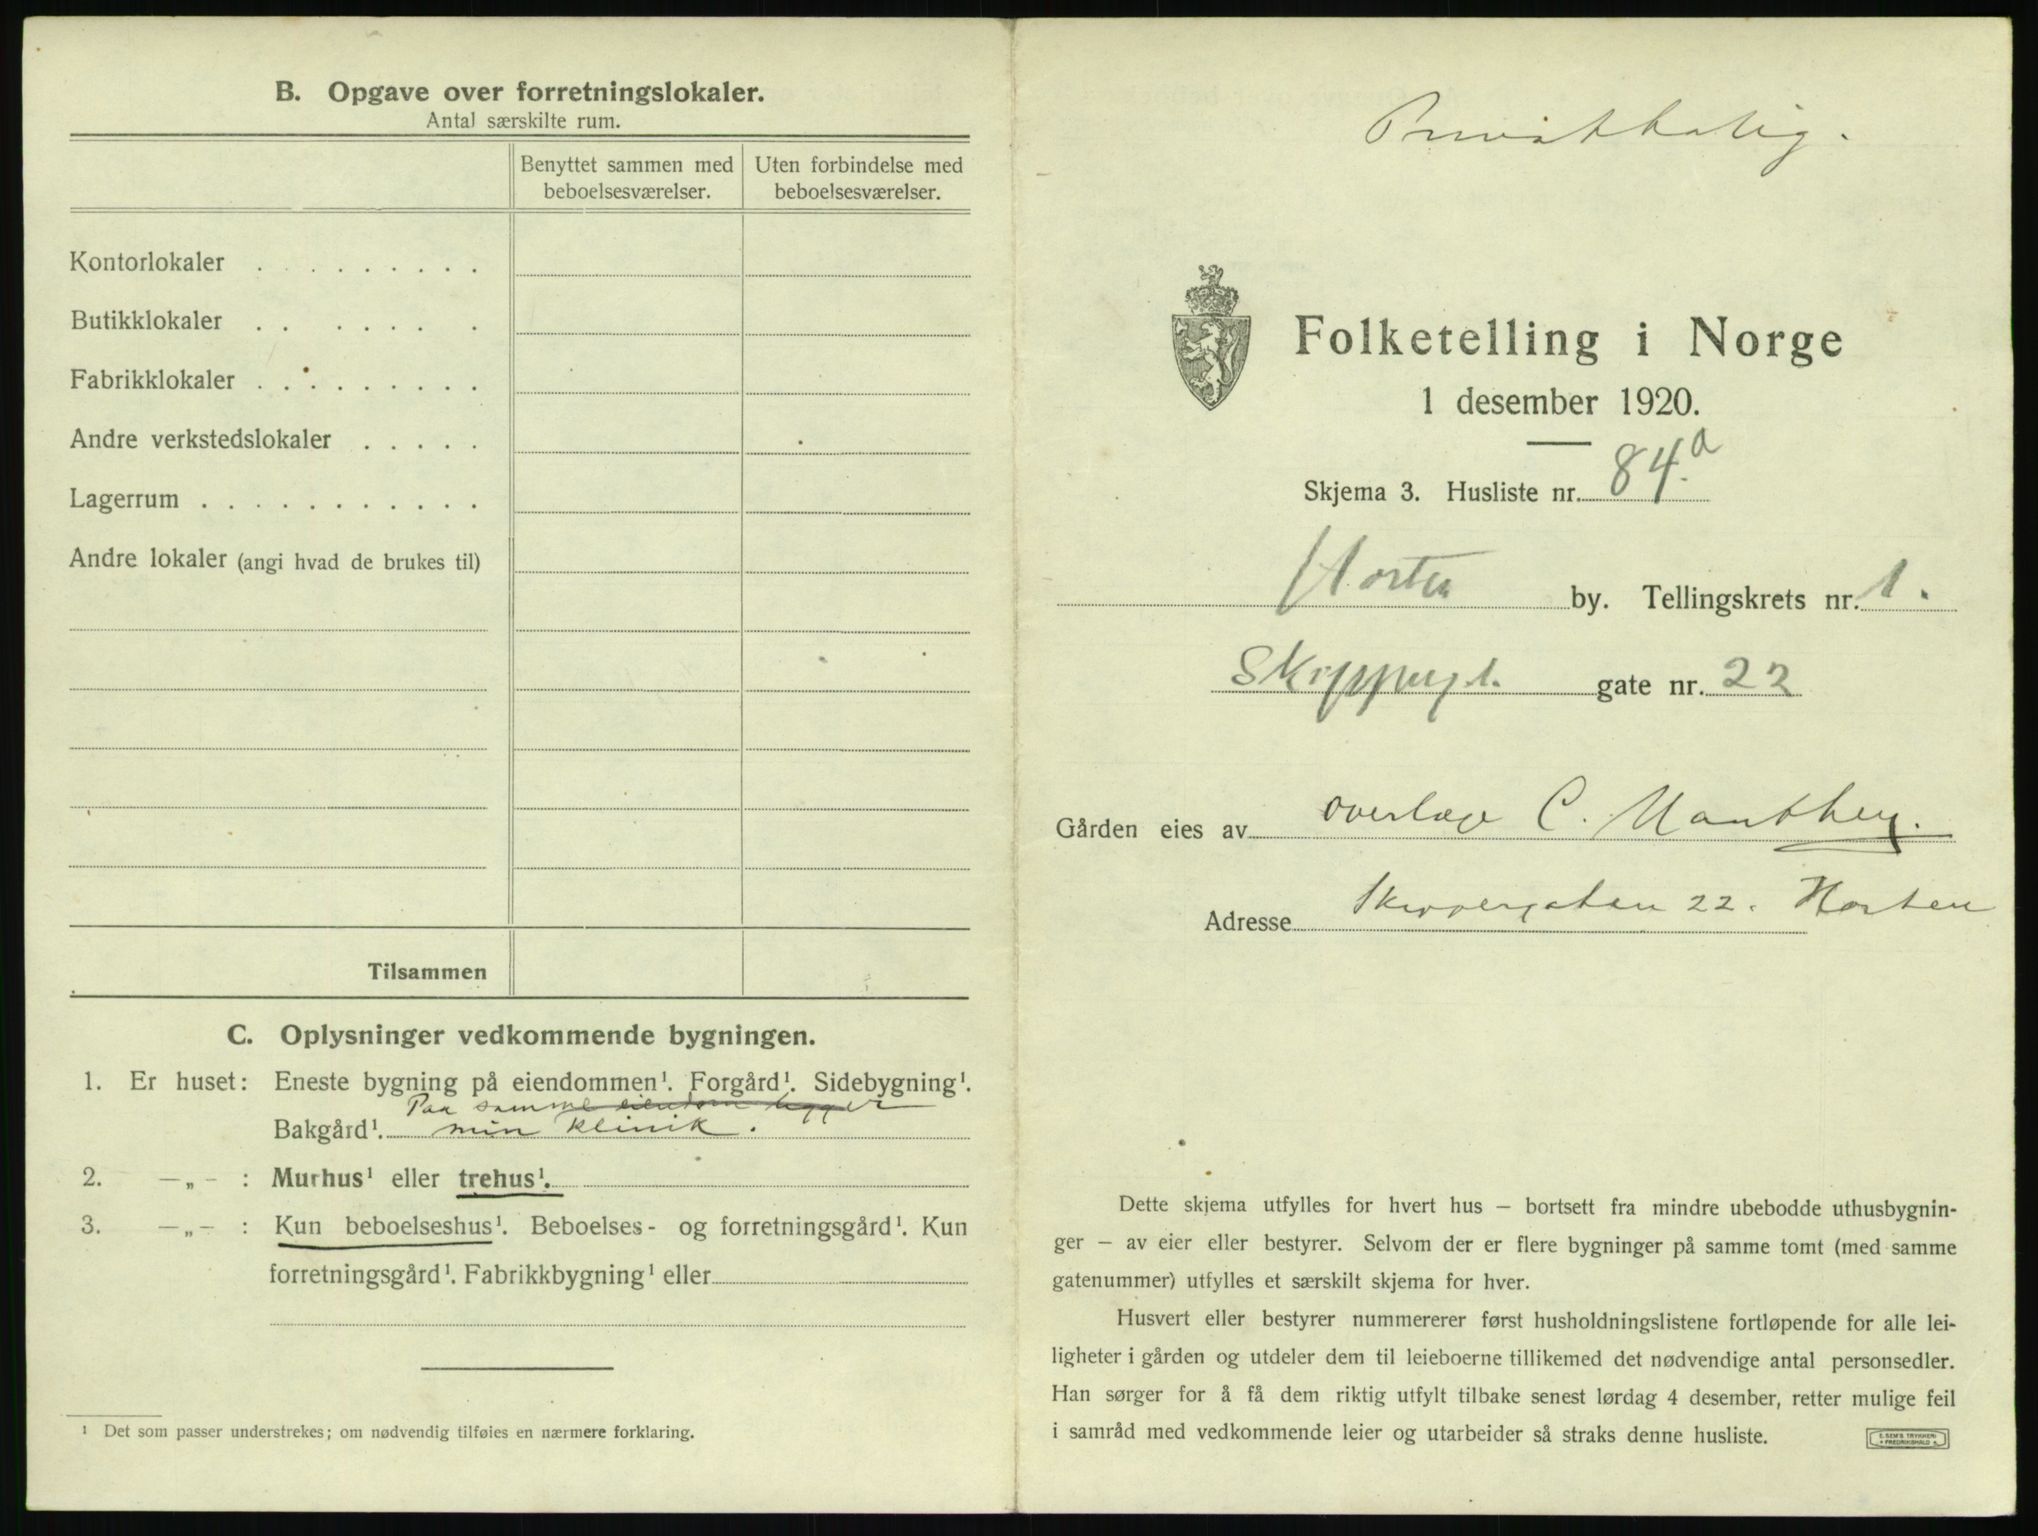 B. Opgave over forretningslokaler.
Antal særskilte rum.
Benyttet sammen med beboelsesværelser.
Uten forbindelse med beboelsesværelser.
Kontorlokaler . . . . . . . . .
Butikklokaler . . . . . . .
Fabrikklokaler . . . . . . . . .
Andre verkstedslokaler . . . . .
Lagerrum . . . . . . . . . . .
Andre lokaler (angi hvad de brukes til)
Tilsammen
C. Oplysninger vedkommende bygningen.
1. Er huset: Eneste bygning på eiendommen¹. Forgård¹. Sidebygning¹.
Paa samme eiendom ligger
Bakgård¹. min klinik.
2. —„— : Murhus¹ eller trehus¹.
3. —„— : Kun beboelseshus¹. Beboelses- og forretningsgård¹. Kun
forretningsgård¹. Fabrikkbygning¹ eller
¹ Det som passer understrekes; om nødvendig tilføies en nærmere forklaring.
Privatbolig.
Folketelling i Norge
1 desember 1920.
Skjema 3. Husliste nr. 84.a
Horten by. Tellingskrets nr. 1.
Skippergt. gate nr. 22
Gården eies av overlæge C. Manthey.
Adresse Skippergaten 22. Horten
Dette skjema utfylles for hvert hus – bortsett fra mindre ubebodde uthusbygnin-
ger – av eier eller bestyrer. Selvom der er flere bygninger på samme tomt (med samme
gatenummer) utfylles et særskilt skjema for hver.
Husvert eller bestyrer nummererer først husholdningslistene fortløpende for alle lei-
ligheter i gården og utdeler dem til leieboerne tillikemed det nødvendige antal personsedler.
Han sørger for å få dem riktig utfylt tilbake senest lørdag 4 desember, retter mulige feil
i samråd med vedkommende leier og utarbeider så straks denne husliste.
E. SEM'S TRYKKERI
FREDRIKSHALD